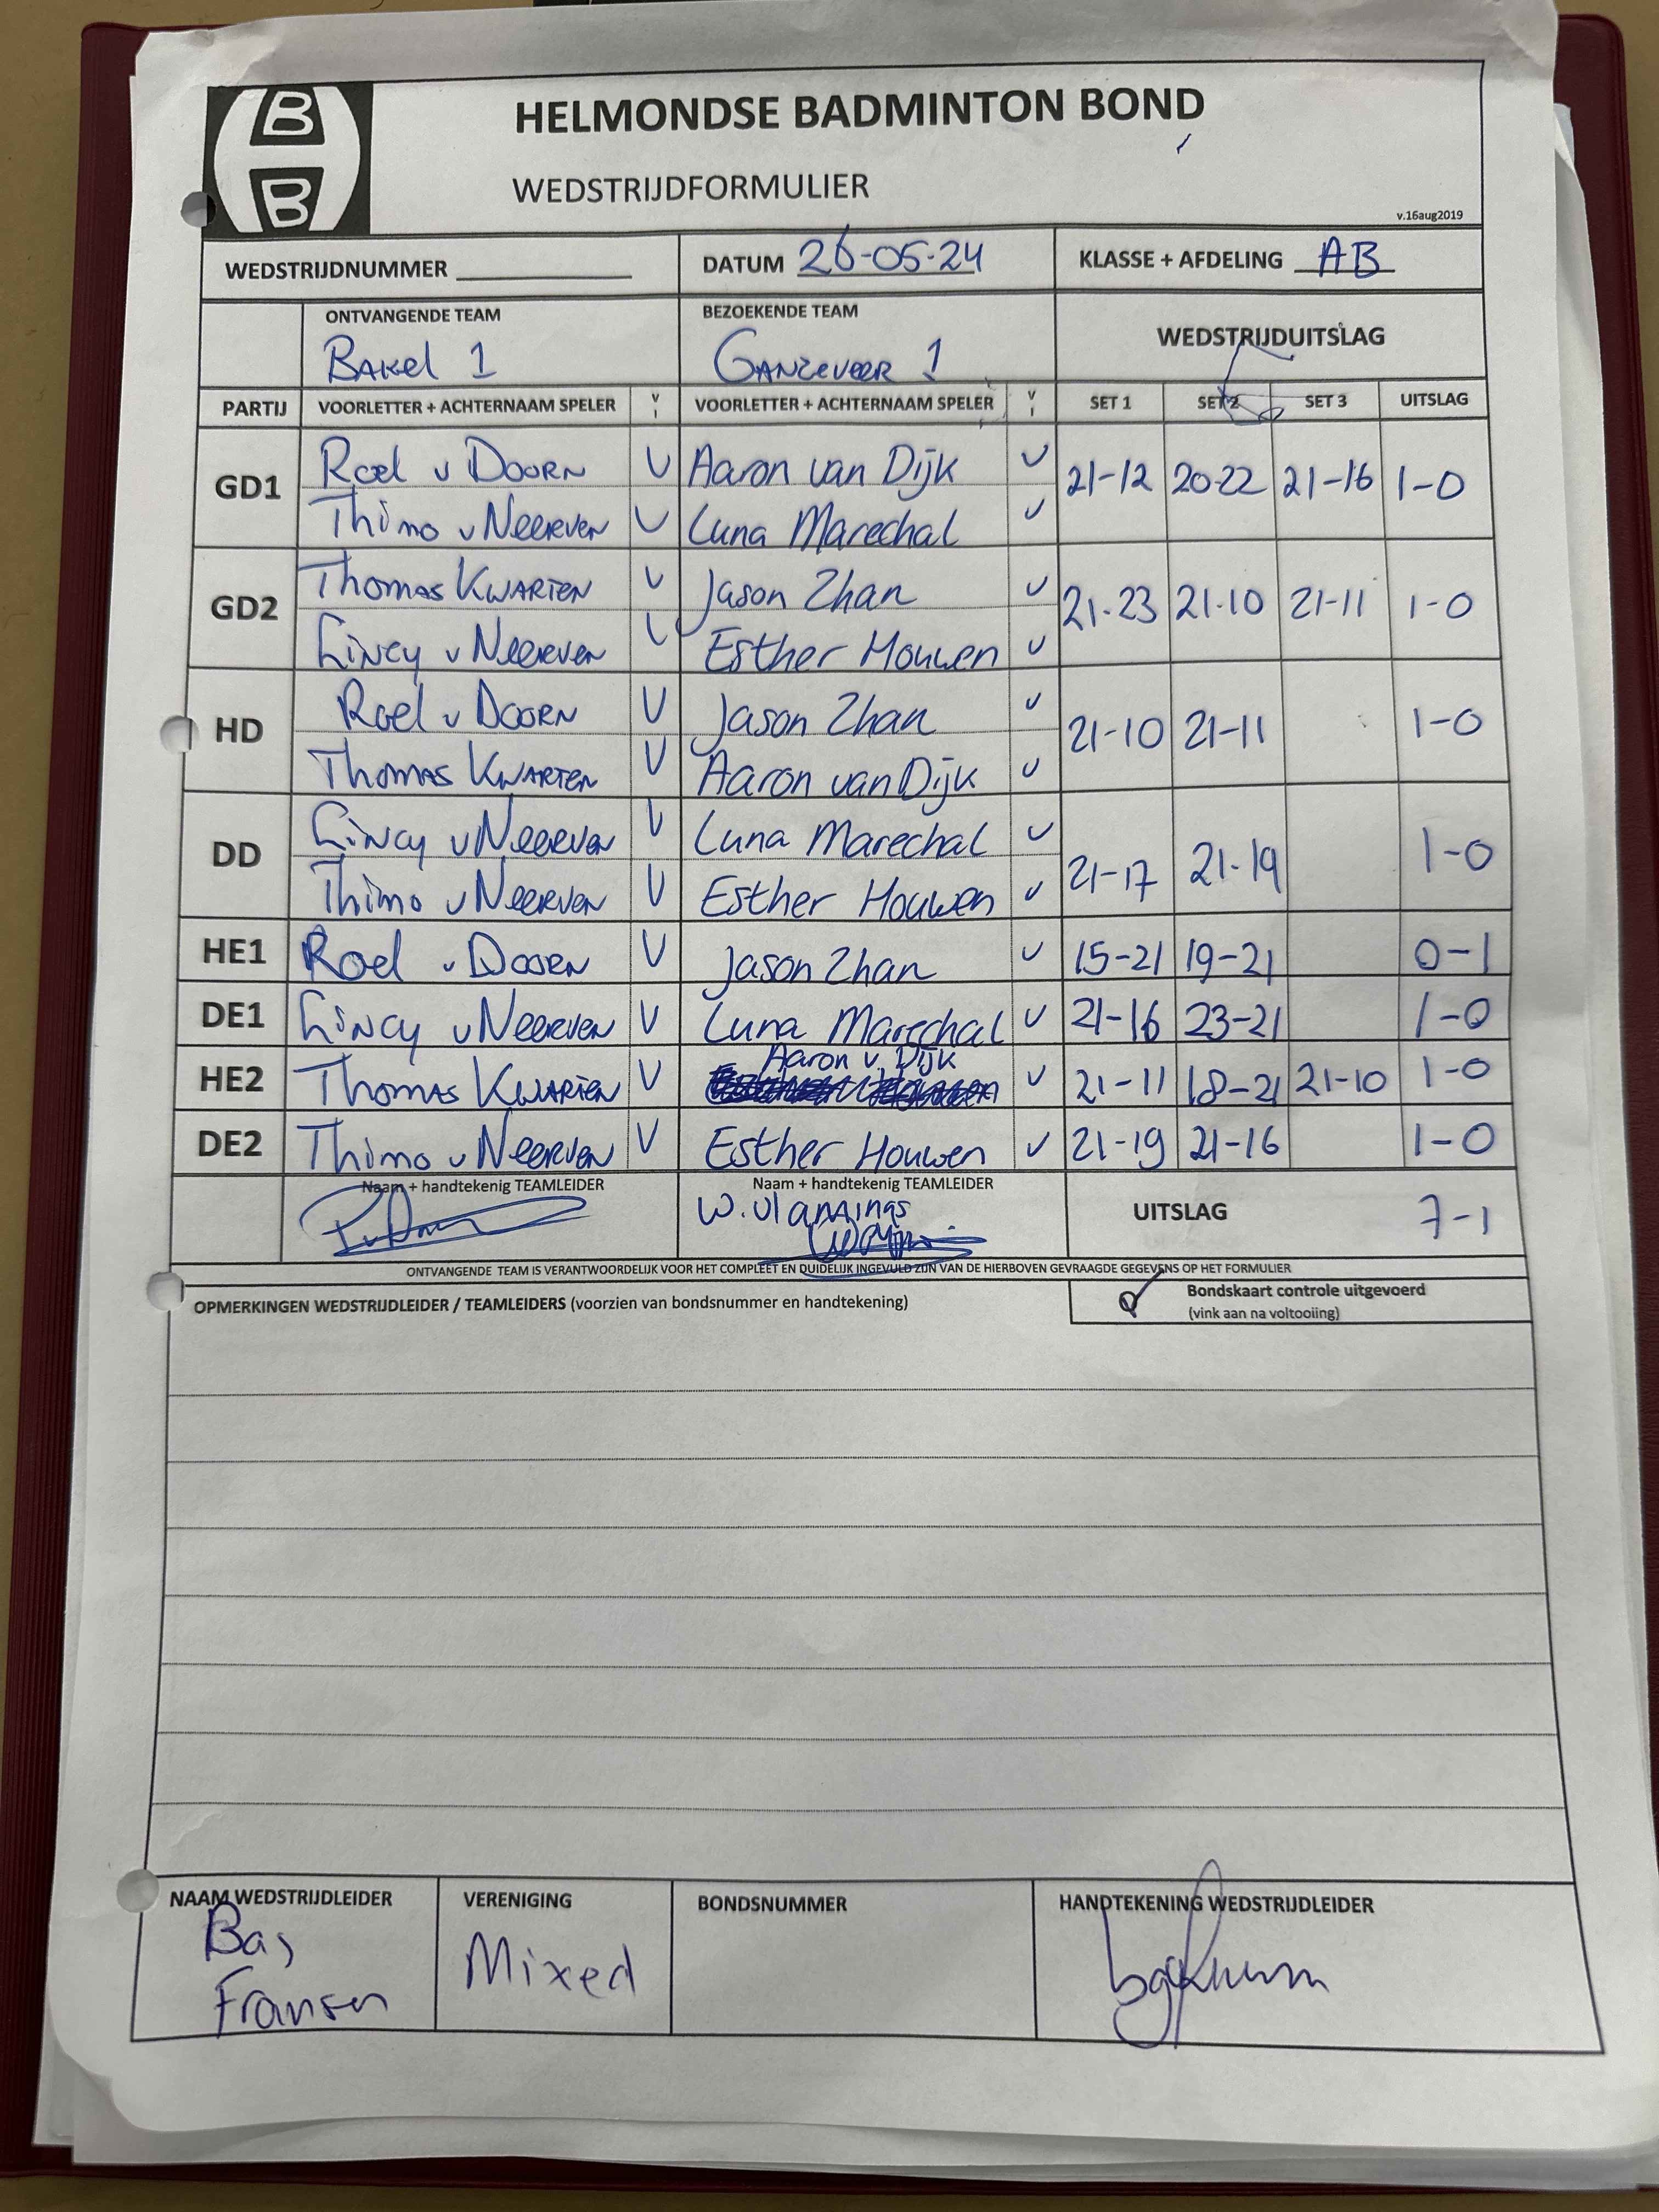 HELMONDSE BADMINTON BOND
WEDSTRIJDFORMULIER
v.16aug2019
WEDSTRIJDNUMMER DATUM 26-05-24 KLASSE + AFDELING AB
ONTVANGENDE TEAM BEZOEKENDE TEAM WEDSTRIJDUITSLAG
Bakel 1 GANZEVEER 1
PARTIJ VOORLETTER + ACHTERNAAM SPELER V I VOORLETTER + ACHTERNAAM SPELER V I SET 1 SET 2 SET 3 UITSLAG
GD1 Roel v Doorn V Aaron van Dijk V 21-12 20-22 21-16 1-0
Thimo v Neerven V Luna Marechal V
GD2 Thomas Kwarten V Jason Zhan V 21-23 21-10 21-11 1-0
Lincy v Neerven V Esther Houwen V
HD Roel v Doorn V Jason Zhan V 21-10 21-11 1-0
Thomas Kwarten V Aaron van Dijk V
DD Lincy v Neerven V Luna Marechal V 21-17 21-19 1-0
Thimo v Neerven V Esther Houwen V
HE1 Roel v Doorn V Jason Zhan V 15-21 19-21 0-1
DE1 Lincy v Neerven V Luna Marechal V 21-16 23-21 1-0
HE2 Thomas Kwarten V Aaron v. Dijk V 21-11 18-21 21-10 1-0
DE2 Thimo v Neerven V Esther Houwen V 21-19 21-16 1-0
Naam + handtekenig TEAMLEIDER Naam + handtekenig TEAMLEIDER UITSLAG 7-1
W. Vlammings
ONTVANGENDE TEAM IS VERANTWOORDELIJK VOOR HET COMPLEET EN DUIDELIJK INGEVULD ZIJN VAN DE HIERBOVEN GEVRAAGDE GEGEVENS OP HET FORMULIER
OPMERKINGEN WEDSTRIJDLEIDER / TEAMLEIDERS (voorzien van bondsnummer en handtekening) Bondskaart controle uitgevoerd
(vink aan na voltooiing)
NAAM WEDSTRIJDLEIDER VERENIGING BONDSNUMMER HANDTEKENING WEDSTRIJDLEIDER
Bas Mixed
Fransen